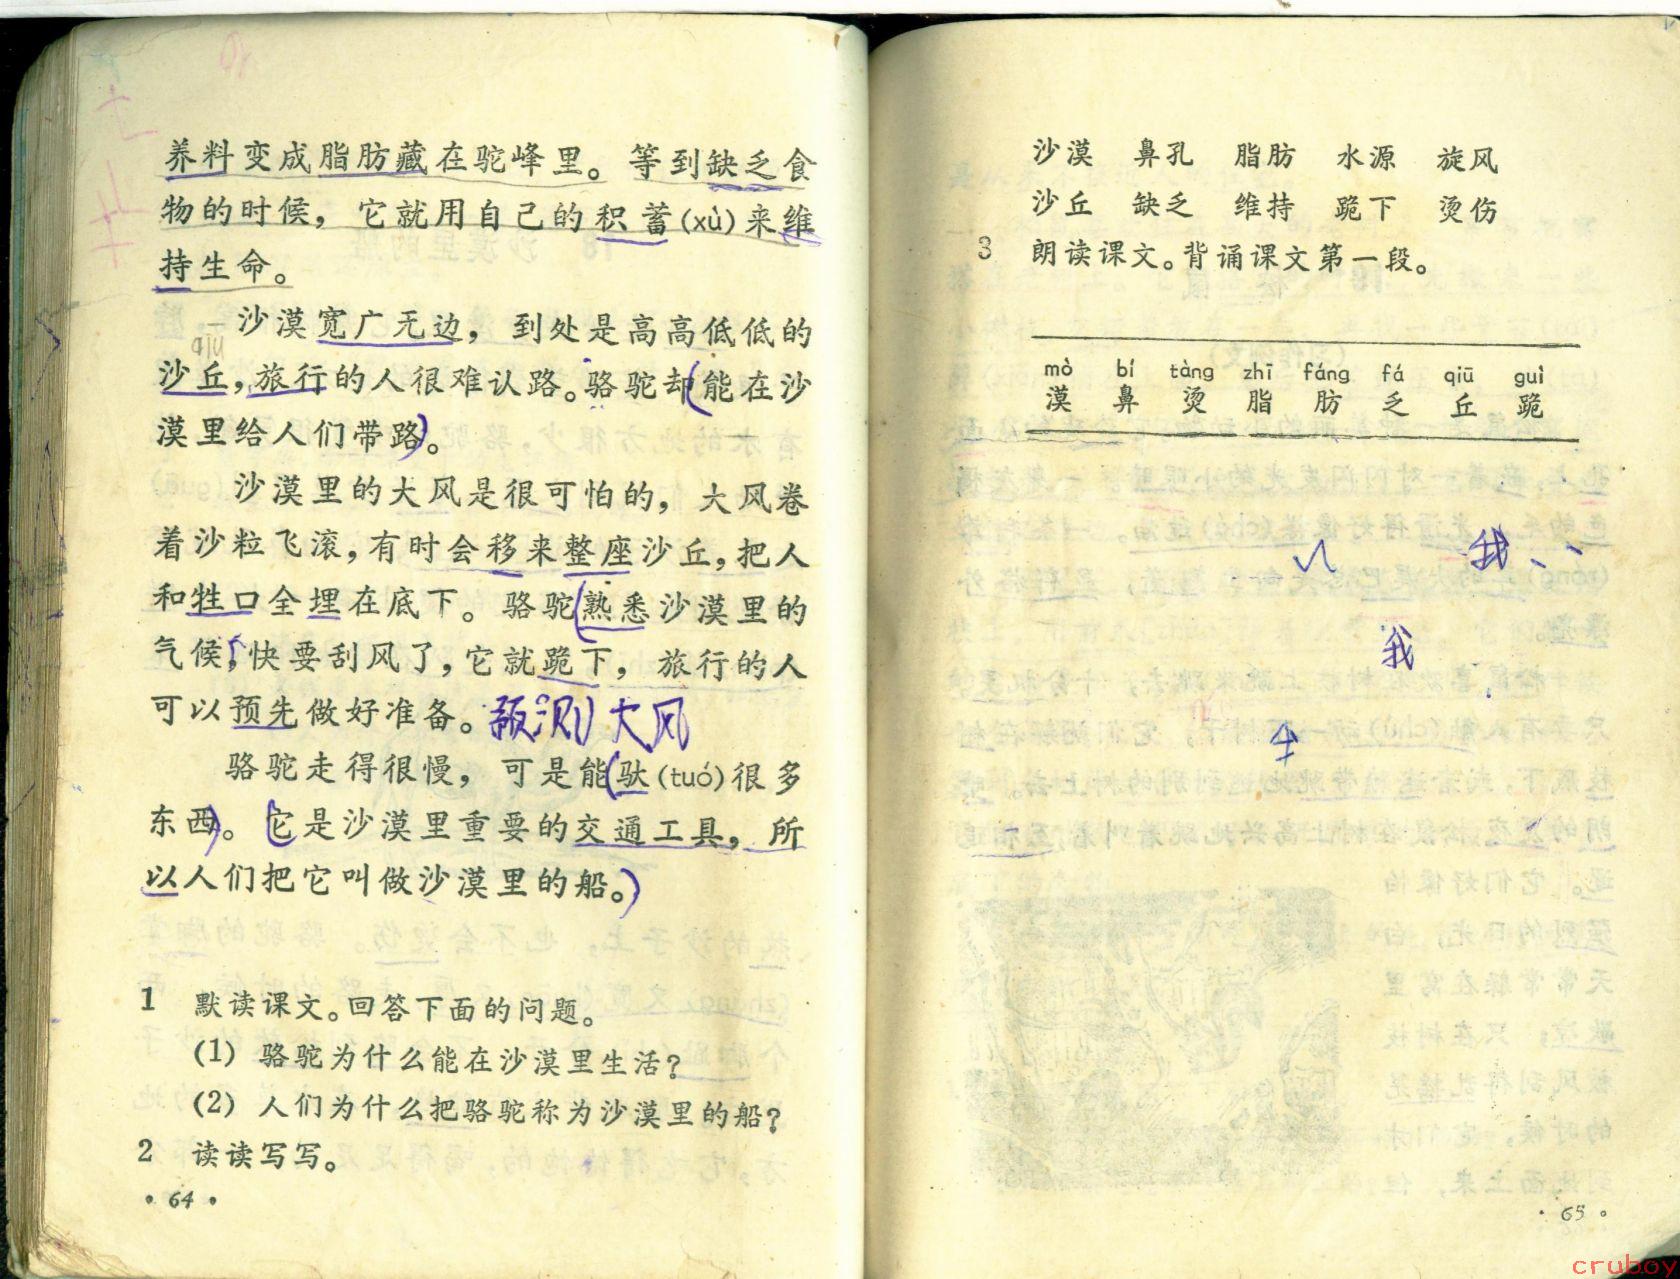 养料变成脂肪藏在驼峰里。等到缺乏食
物的时候，它就用自己的积蓄(xù)来维
持生命。
沙漠宽广无边，到处是高高低低的
qiū
沙丘，旅行的人很难认路。骆驼却能在沙
漠里给人们带路。
沙漠里的大风是很可怕的，大风卷
着沙粒飞滚，有时会移来整座沙丘，把人
和牲口全埋在底下。骆驼熟悉沙漠里的
气候，快要刮风了，它就跪下，旅行的人
可以预先做好准备。预测大风
骆驼走得很慢，可是能驮(tuó)很多
东西。它是沙漠里重要的交通工具，所
以人们把它叫做沙漠里的船。
1 默读课文。回答下面的问题。
(1) 骆驼为什么能在沙漠里生活？
(2) 人们为什么把骆驼称为沙漠里的船？
2 读读写写。
·64·
沙漠 鼻孔 脂肪 水源 旋风
沙丘 缺乏 维持 跪下 烫伤
3 朗读课文。背诵课文第一段。
mò bí tàng zhī fáng fá qiū guì
漠 鼻 烫 脂 肪 乏 丘 跪
我
我
·65·
cruboy